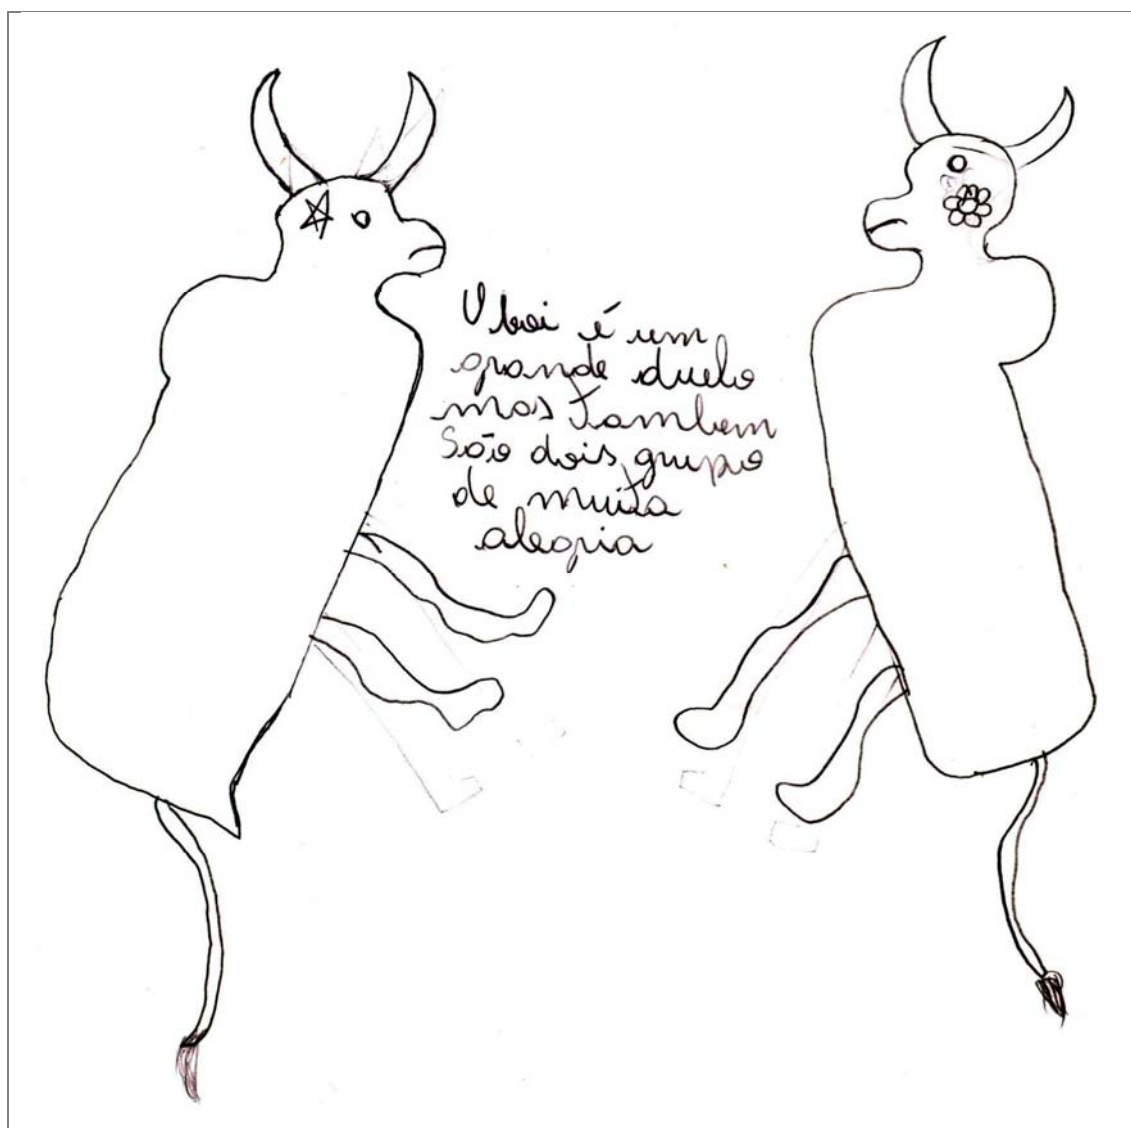 O boi é um
grande duelo
mas também
São dois grupo
de muita
alegria